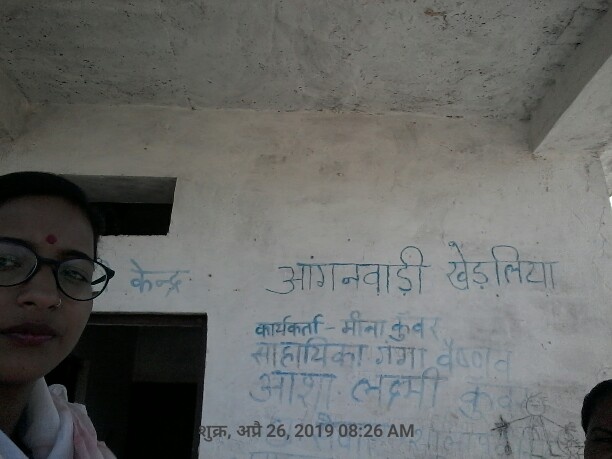 केन्द्र आंगनवाड़ी खेड़लिया
कार्यकर्ता - मीना कुंवर
साहायिका गंगा वैष्णव
आशा लक्ष्मी कुंवर
शुक्र, अप्रै 26, 2019 08:26 AM